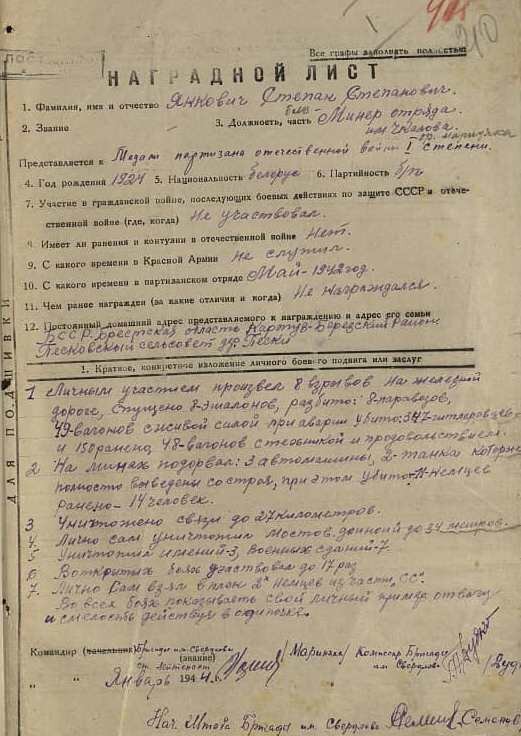 Все графы заполнять полностью
НАГРАДНОЙ ЛИСТ
1. Фамилия, имя и отчество Янкович Степан Степанович.
2. Звание 3. Должность, часть Минер отряда
им Чкалова.
Представляется к Медали партизана отечественной войны I степени.
4. Год рождения 1924 5. Национальность белорус 6. Партийность б/п
7. Участие в гражданской войне, последующих боевых действиях по защите СССР и отече-
ственной войне (где, когда) Не участвовал.
8. Имеет ли ранения и контузии в отечественной войне Нет.
9. С какого времени в Красной Армии Не служил.
10. С какого времени в партизанском отряде Май-1942 год.
11. Чем ранее награжден (за какие отличия и когда) Не награждался.
12. Постоянный домашний адрес представляемого к награждению и адрес его семьи
БССР. Брестская область Картуз-Березский район
Песковский сельсовет дер. Пески
1. Краткое, конкретное изложение личного боевого подвига или заслуг
1 Личным участием произвел 8 взрывов на железной
дороге, спущено 8-эшалонов, разбито: 8-паравозов,
49-вагонов с живой силой при аварии убито: 347-гитлеровцев
и 150 ранено, 48-вагонов с техникой и продовольствием.
2 На минах подорвал: 3 автомашины, 2-танка которые
полностю выведены со строя, при этом убито-11-немцев
ранено - 14 человек.
3 Уничтожено связи до 27 километров.
4. Лично сам уничтожил мостов длинной до 34 метров.
5 Уничтожил имений-3, военных зданий-7.
6 В открытых боях участвовал до 17 раз
7. Лично сам взял в плен 2х немцев из части "СС".
Во всех боях показывать свой личный пример отвагу
и смелость действуя в одиночке.
Командир (начальник) Бригады им. Свердлова /Мариняко/ Комиссар Бригады
ст. лейтенант (звание) им Свердлова
" " Январь 1944.
Нач. Штаба Бригады им. Свердлова
ДЛЯ ПОДШИВКИ